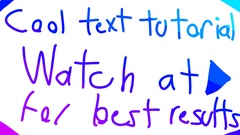 Cool text tutorial
Watch at
for best results